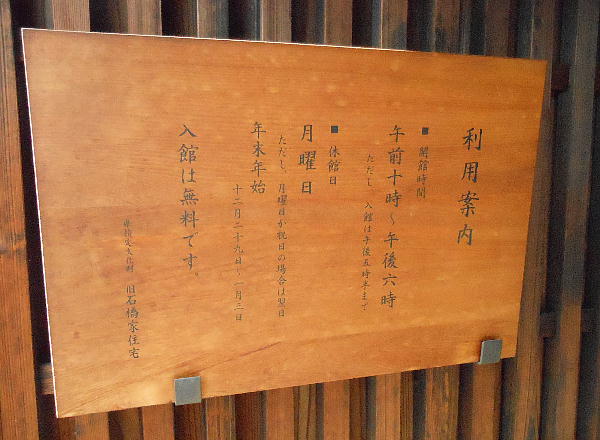 利用案内
■ 開館時間
午前十時～午後六時
ただし、入館は午後五時半まで
■ 休館日
月曜日
ただし、月曜日が祝日の場合は翌日
年末年始
十二月二十九日～一月三日
入館は無料です。
旧石橋家住宅